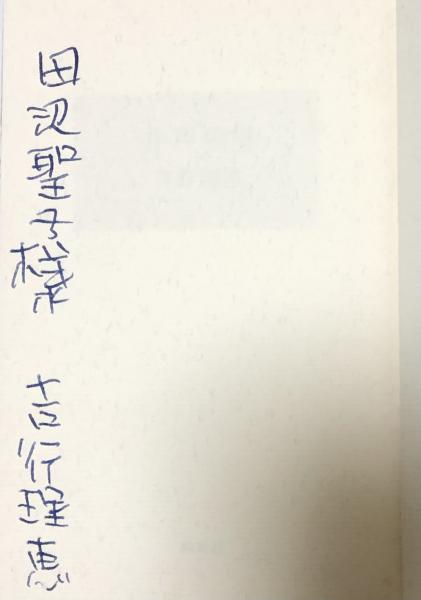 田辺聖子様 吉行理恵